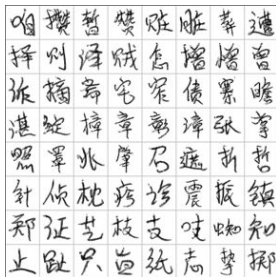 咱攒暂赞赃脏葬遭
择则泽贼怎增憎曾
扎摘斋宅窄债寨瞻
湛绽樟章彰漳张掌
照罩兆肇召遮折哲
针侦枕疹诊震振镇
郑证芝枝支吱蜘知
止趾只旨纸志挚掷